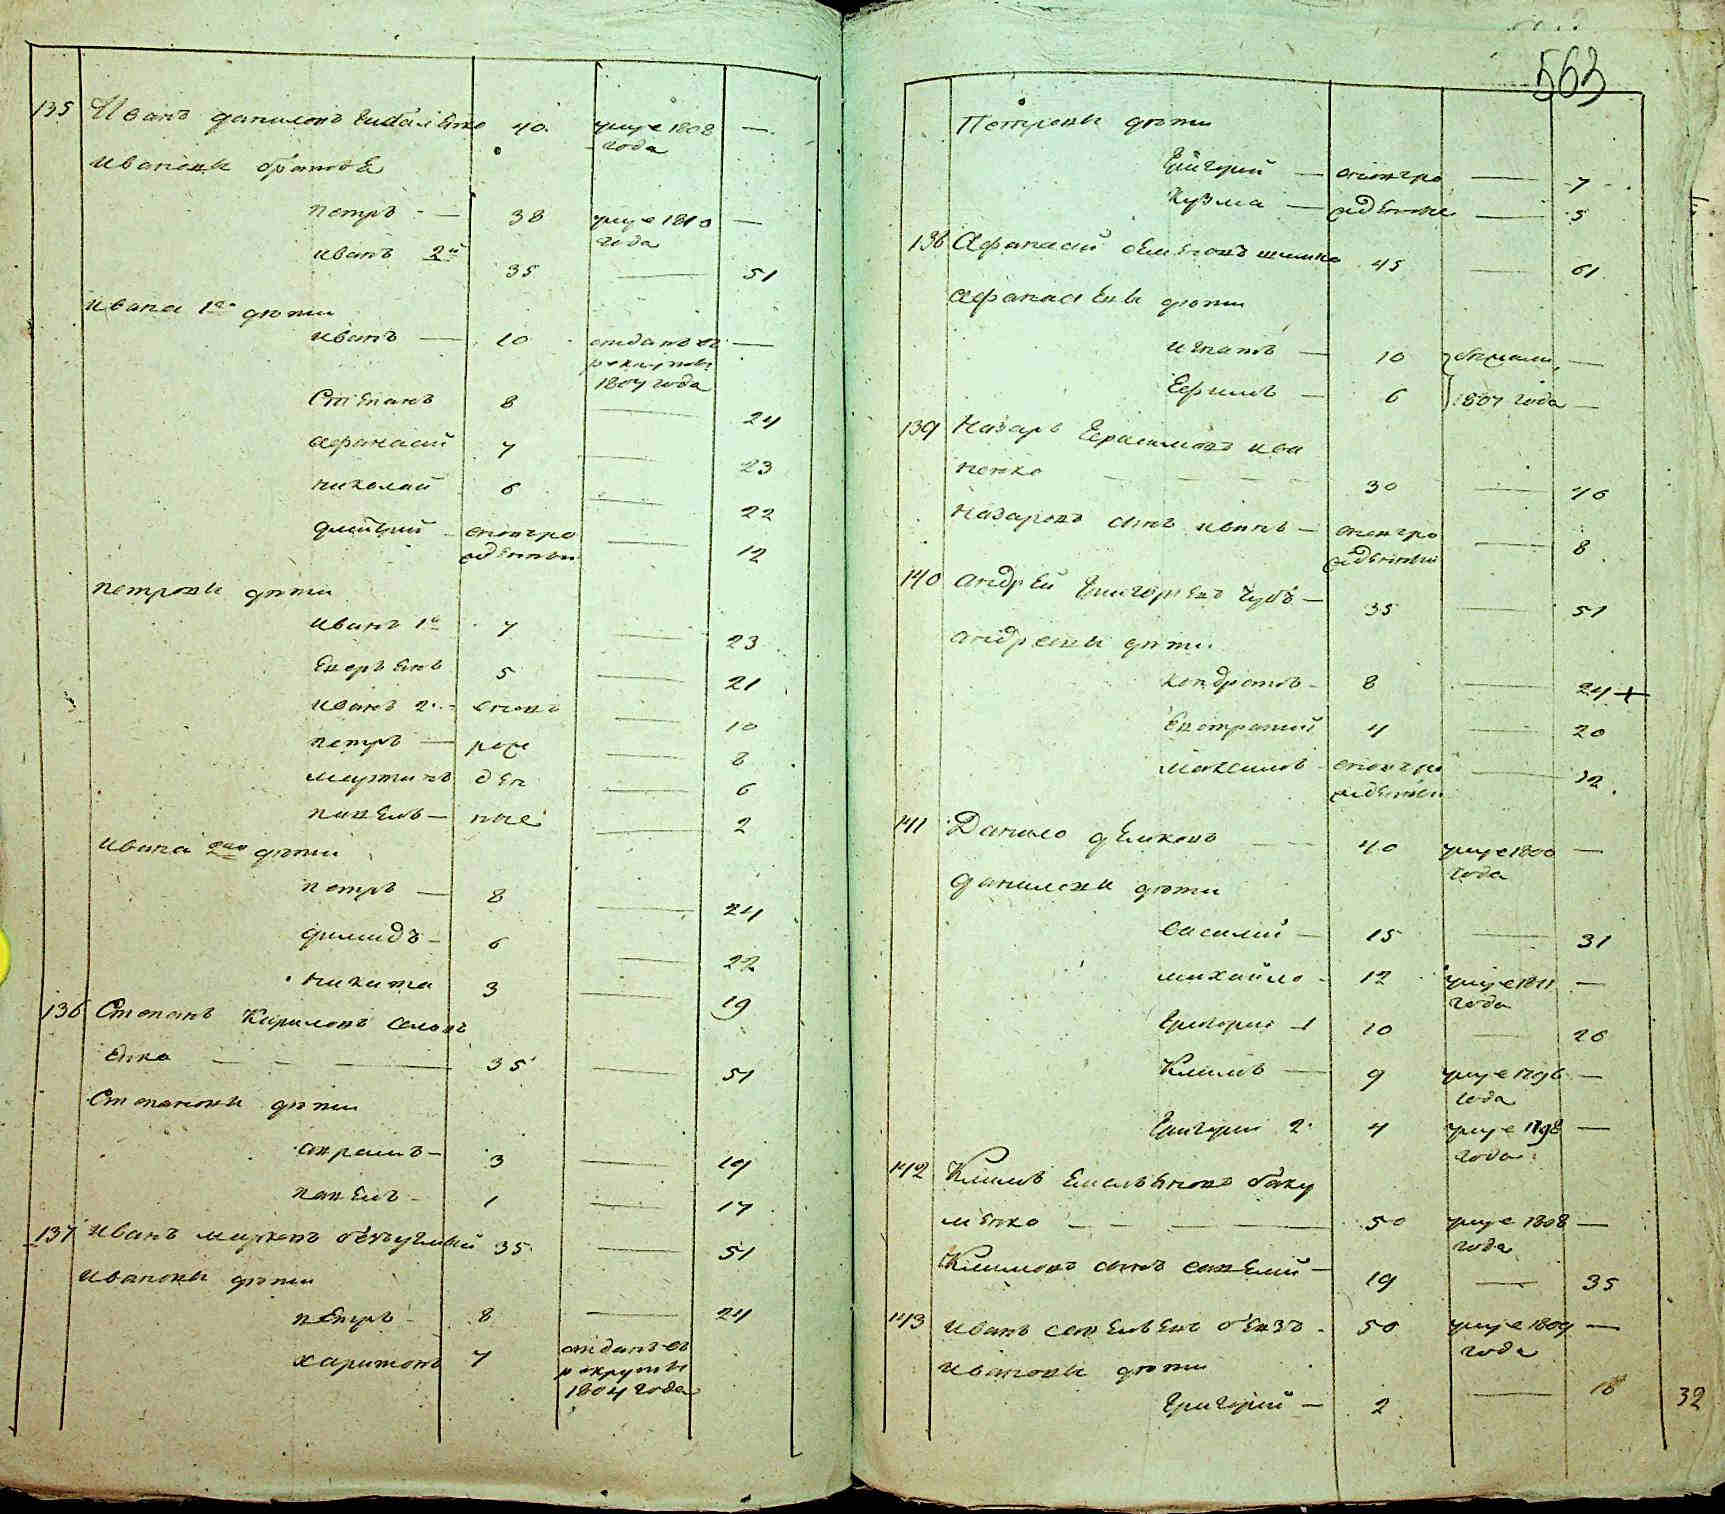 135 Иванъ даниловъ 40. умре 1808 —
года
ивановы братья
петръ — 38 умре 1810 —
года
иванъ 2й 35 — 51
ивана 1го дѣти
иванъ — 10 отданъ въ —
рекруты
1807 года
Степанъ 8 — 24
афанасий 7 — 23
николай 6 — 22
дмитрий вновьро — 12
жденный
петровы дѣти
иванъ 1й 7 — 23
5 — 21
иванъ 2й вновь — 10
петръ — рож — 8
мартинъ ден — 6
павелъ — ные 2
ивана 2го дѣти
петръ — 8 — 24
димидъ — 6 — 22
никита 3 — 19
136 Степанъ Кириловъ
енко — 35 — 51
Степановы дѣти
авраамъ — 3 — 19
павелъ — 1 — 17
137 иванъ марковъ 35 — 51
ивановы дѣти
петръ 8 — 24
харитонъ 7 отданъ въ
рекруты
1804 года
563
Петровы дѣти
Григорий — вновьро — 7
Кузма — жденные — 5
138 Афанасий шимко 45 — 61
афанасиевы дѣти
игнатъ — 10 бежали —
Ефимъ — 6 1807 года —
139 Назаръ Герасимовъ ива
ненко — 30 — 46
назаровъ сынъ иванъ — вновьро — 8
жденный
140 андрей Григорьевъ Чубъ — 35 — 51
андреевы дѣти
кондратъ — 8 — 24 +
Евстратий 4 — 20
максимъ — вновьро — 12
жденный
141 Данило 40 умре 1800 —
года
даниловы дѣти
василий — 15 — 31
михайло — 12 умре 1811 —
года
Григорий 1 10 — 26
Климъ — 9 умре 1796 —
года
Григорий 2 4 умре 1798 —
года
142 Климъ Емельяновъ баку
менко — 50 умре 1808 —
года
Климовъ сынъ савелий — 19 — 35
143 иванъ савельевъ 50 умре 1809 —
года
ивановы дѣти
Григорий — 2 — 18
32